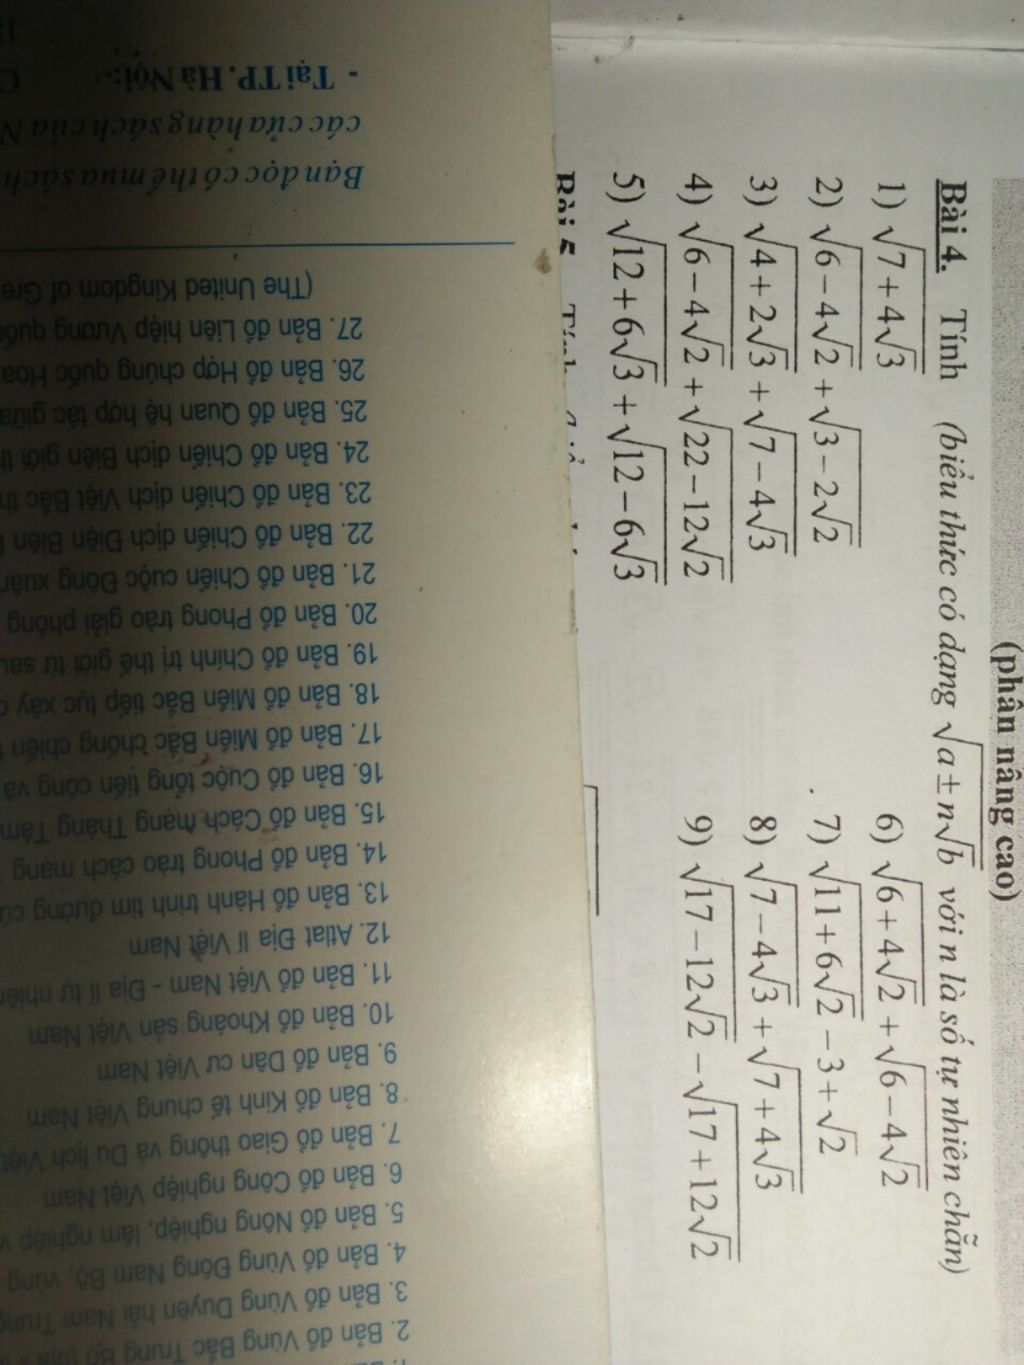 (phần nâng cao)
Bài 4. Tính (biểu thức có dạng √(a±n√b) với n là số tự nhiên chẵn)
1) √(7+4√3)
2) √(6−4√2)+√(3−2√2)
3) √(4+2√3)+√(7−4√3)
4) √(6−4√2)+√(22−12√2)
5) √(12+6√3)+√(12−6√3)
6) √(6+4√2)+√(6−4√2)
7) √(11+6√2)−3+√2
8) √(7−4√3)+√(7+4√3)
9) √(17−12√2)−√(17+12√2)
Bài 5
2. Bản đồ Vùng Bắc Trung Bộ
3. Bản đồ Vùng Duyên hải Nam Trung
4. Bản đồ Vùng Đông Nam Bộ, vùng
5. Bản đồ Nông nghiệp, lâm nghiệp
6. Bản đồ Công nghiệp Việt Nam
7. Bản đồ Giao thông và Du lịch Việt
8. Bản đồ Kinh tế chung Việt Nam
9. Bản đồ Dân cư Việt Nam
10. Bản đồ Khoáng sản Việt Nam
11. Bản đồ Việt Nam - Địa lí tự nhiên
12. Atlat Địa lí Việt Nam
13. Bản đồ Hành trình tìm đường cứu
14. Bản đồ Phong trào cách mạng
15. Bản đồ Cách mạng Tháng Tám
16. Bản đồ Cuộc tổng tiến công và
17. Bản đồ Miền Bắc chống chiến
18. Bản đồ Miền Bắc tiếp tục xây
19. Bản đồ Chính trị thế giới từ sau
20. Bản đồ Phong trào giải phóng
21. Bản đồ Chiến cuộc Đông xuân
22. Bản đồ Chiến dịch Điện Biên
23. Bản đồ Chiến dịch Việt Bắc
24. Bản đồ Chiến dịch Biên giới
25. Bản đồ Quan hệ hợp tác giữa
26. Bản đồ Hợp chúng quốc Hoa
27. Bản đồ Liên hiệp Vương quốc
(The United Kingdom of Gre
Bạn đọc có thể mua sách
các cửa hàng sách của N
- Tại TP. Hà Nội: